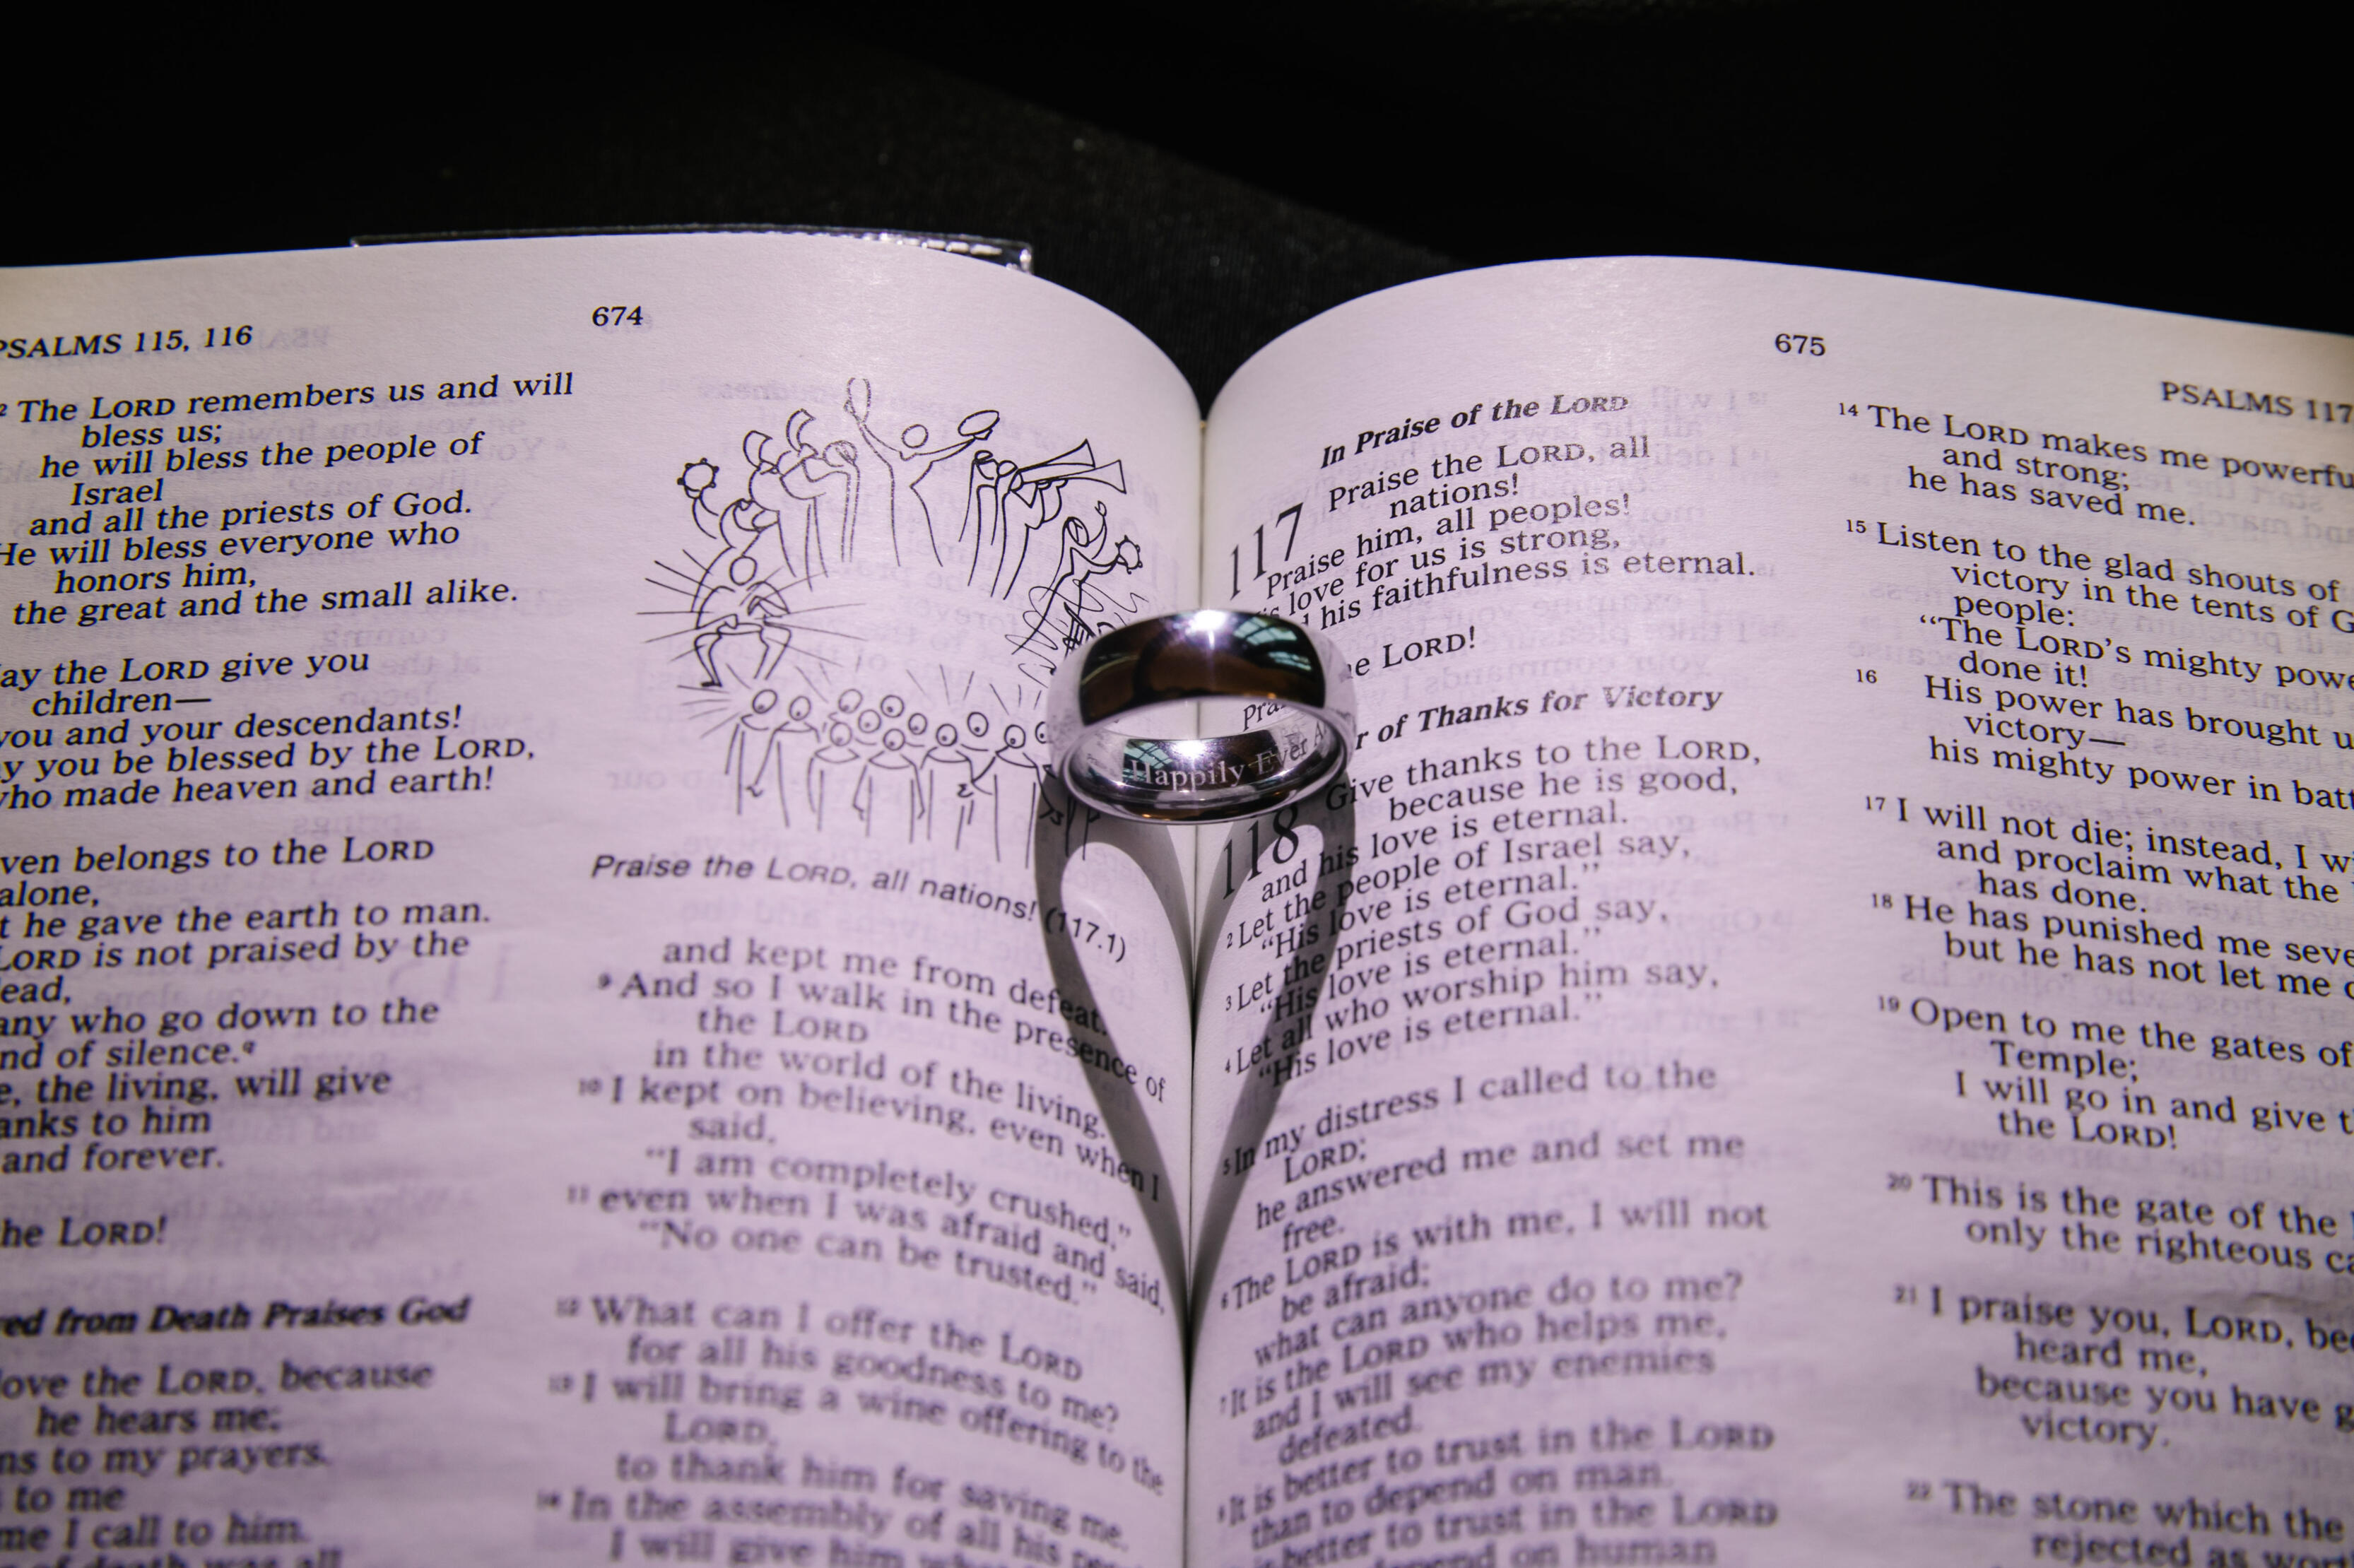 PSALMS 115, 116
674
The LORD remembers us and will
bless us;
he will bless the people of
Israel
and all the priests of God.
He will bless everyone who
honors him,
the great and the small alike.
the LORD give you
children—
you and your descendants!
you be blessed by the LORD,
who made heaven and earth!
belongs to the LORD
alone,
he gave the earth to man.
LORD is not praised by the
any who go down to the
of silence.
the living, will give
to him
and forever.
the LORD!
from Death Praises God
love the LORD, because
he hears me;
to my prayers.
to me
me I call to him.
Praise the LORD, all nations! (117.1)
and kept me from defeat.
9 And so I walk in the presence of
the LORD
in the world of the living.
10 I kept on believing, even when I
said,
“I am completely crushed,”
11 even when I was afraid and said,
“No one can be trusted.”
12 What can I offer the LORD
for all his goodness to me?
13 I will bring a wine offering to the
LORD,
to thank him for saving me.
14 In the assembly of all his
I will give him
Happily Ever
675
PSALMS 117
In Praise of the LORD
117 Praise the LORD, all
nations!
Praise him, all peoples!
love for us is strong,
his faithfulness is eternal.
LORD!
of Thanks for Victory
118 Give thanks to the LORD,
because he is good,
and his love is eternal.
2 Let the people of Israel say,
“His love is eternal.”
3 Let the priests of God say,
“His love is eternal.”
4 Let all who worship him say,
“His love is eternal.”
5 In my distress I called to the
LORD;
he answered me and set me
free.
6 The LORD is with me, I will not
be afraid;
what can anyone do to me?
7 It is the LORD who helps me,
and I will see my enemies
defeated.
8 It is better to trust in the LORD
than to depend on man.
better to trust in the LORD
depend on human
14 The LORD makes me
and strong;
he has saved me.
15 Listen to the glad shouts of
victory in the tents of
people:
“The LORD’S mighty
done it!
16 His power has brought
victory—
his mighty power in
17 I will not die; instead, I
and proclaim what the
has done.
18 He has punished me
but he has not let me
19 Open to me the gates of
Temple;
I will go in and give
the LORD!
20 This is the gate of the
only the righteous
21 I praise you, LORD,
heard me,
because you have
victory.
22 The stone which the
rejected as